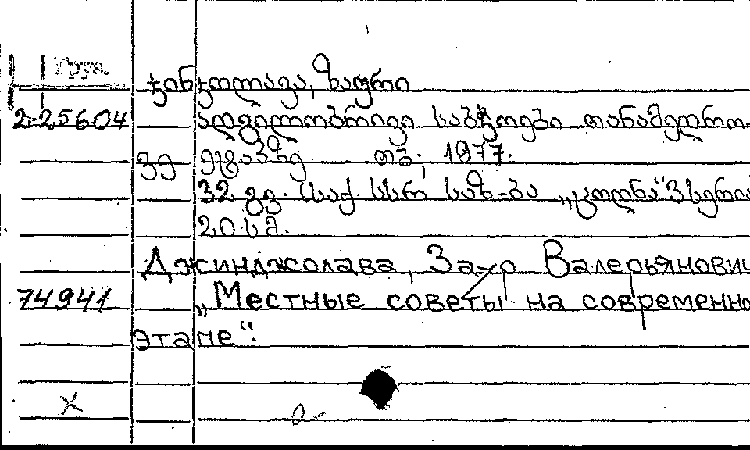 Груз.
ჯინჯოლავა, ზაური
2-25604 ადგილობრივი საბჭოები თანამედრო-
ვე ეტაპზე თბ., 1977.
32 გვ. (საქ. სსრ საზ-ბა „ცოდნა“
20 სმ.
Джинджолава, Заур Валерьянович
74941 „Местные советы на современно
этапе".